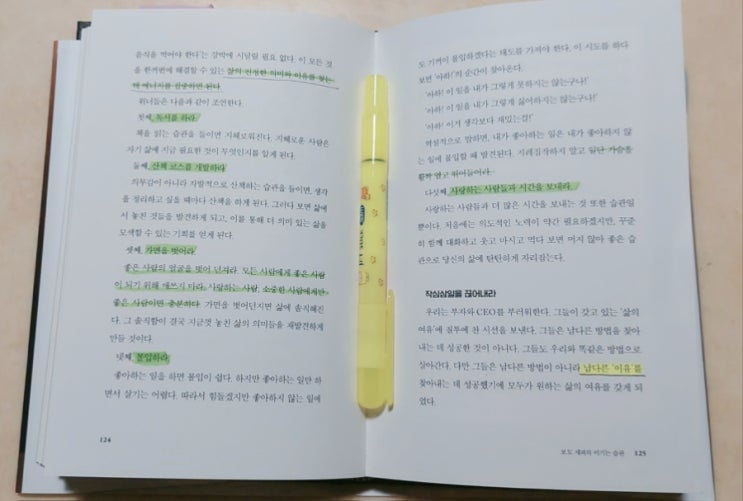 음식을 먹어야 한다'는 강박에 시달릴 필요 없다. 이 모든 것
을 한꺼번에 해결할 수 있는 삶의 진정한 의미와 이유를 찾는
데 에너지를 집중하면 된다.
위너들은 다음과 같이 조언한다.
첫째, 독서를 하라.
책을 읽는 습관을 들이면 지혜로워진다. 지혜로운 사람은
자기 삶에 지금 필요한 것이 무엇인지를 알게 된다.
둘째, 산책 코스를 개발하라
의무감이 아니라 자발적으로 산책하는 습관을 들이면, 생각
을 정리하고 싶을 때마다 산책을 하게 된다. 그러다 보면 삶에
서 놓친 것들을 발견하게 되고, 이를 통해 더 의미 있는 삶을
모색할 수 있는 기회를 얻게 된다.
셋째, 가면을 벗어라.
좋은 사람의 얼굴을 벗어 던져라. 모든 사람에게 좋은 사람
이 되기 위해 애쓰지 마라. 사랑하는 사람, 소중한 사람에게만
좋은 사람이면 충분하다. 가면을 벗어던지면 삶에 솔직해진
다. 그 솔직함이 결국 지금껏 놓친 삶의 의미들을 재발견하게
만들 것이다.
넷째, 몰입하라.
좋아하는 일을 하면 몰입이 쉽다. 하지만 좋아하는 일만 하
면서 살기는 어렵다. 따라서 힘들겠지만 좋아하지 않는 일에
124
도 기꺼이 몰입하겠다는 태도를 가져야 한다. 이 시도를 하다
보면 '아하!'의 순간이 찾아온다.
'아하! 이 일을 내가 그렇게 못하지는 않는구나!'
'아하! 이 일을 내가 그렇게 싫어하지는 않는구나!'
'아하! 이거 생각보다 재밌는걸!'
역설적으로 말하면, 내가 좋아하는 일은 내가 좋아하지 않
는 일에 몰입할 때 발견된다. 지레짐작하지 말고 일단 가슴을
활짝 열고 뛰어들어라.
다섯째, 사랑하는 사람들과 시간을 보내라.
사랑하는 사람들과 더 많은 시간을 보내는 것 또한 습관일
뿐이다. 처음에는 의도적인 노력이 약간 필요하겠지만, 꾸준
히 함께 대화하고 웃고 마시고 먹다 보면 머지 않아 좋은 습
관으로 당신의 삶에 탄탄하게 자리잡는다.
작심삼일을 끊어내라
우리는 부자와 CEO를 부러워한다. 그들이 갖고 있는 '삶의
여유'에 질투에 찬 시선을 보낸다. 그들은 남다른 방법을 찾아
내는 데 성공한 것이 아니다. 그들도 우리와 똑같은 방법으로
살아간다. 다만 그들은 남다른 방법이 아니라 남다른 '이유'를
찾아내는 데 성공했기에 모두가 원하는 삶의 여유를 갖게 되
었다.
125